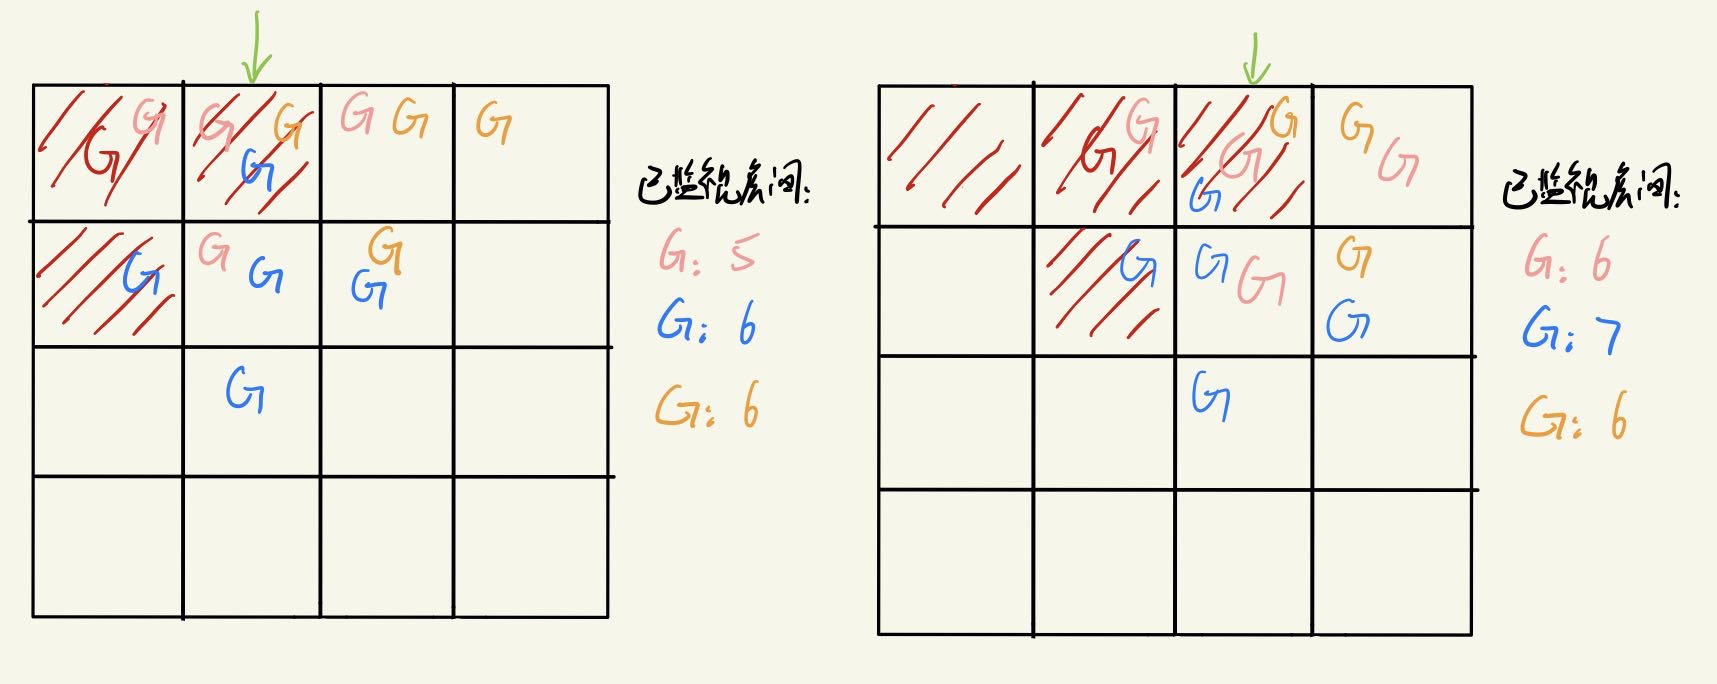 G G G G G G G G
G G G G
G
已监视房间:
G: 5
G: 6
G: 6
G G G G G G G
G G G G G
G
已监视房间:
G: 6
G: 7
G: 6